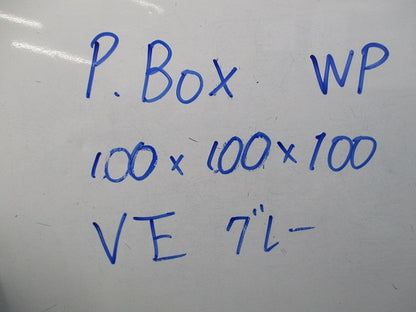 P.BOX WP
100×100×100
VE グレー